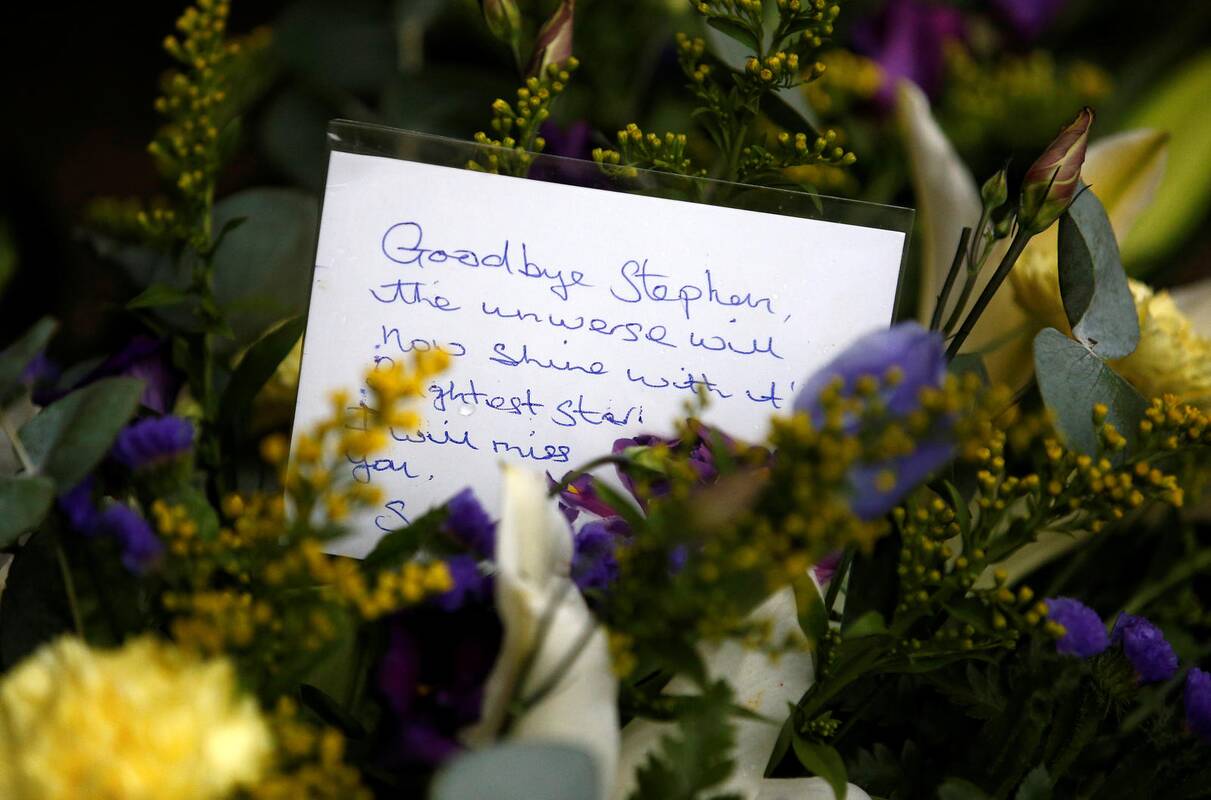 Goodbye Stephen,
the universe will
now shine with it'
ghtest star.
I will miss
you.
S